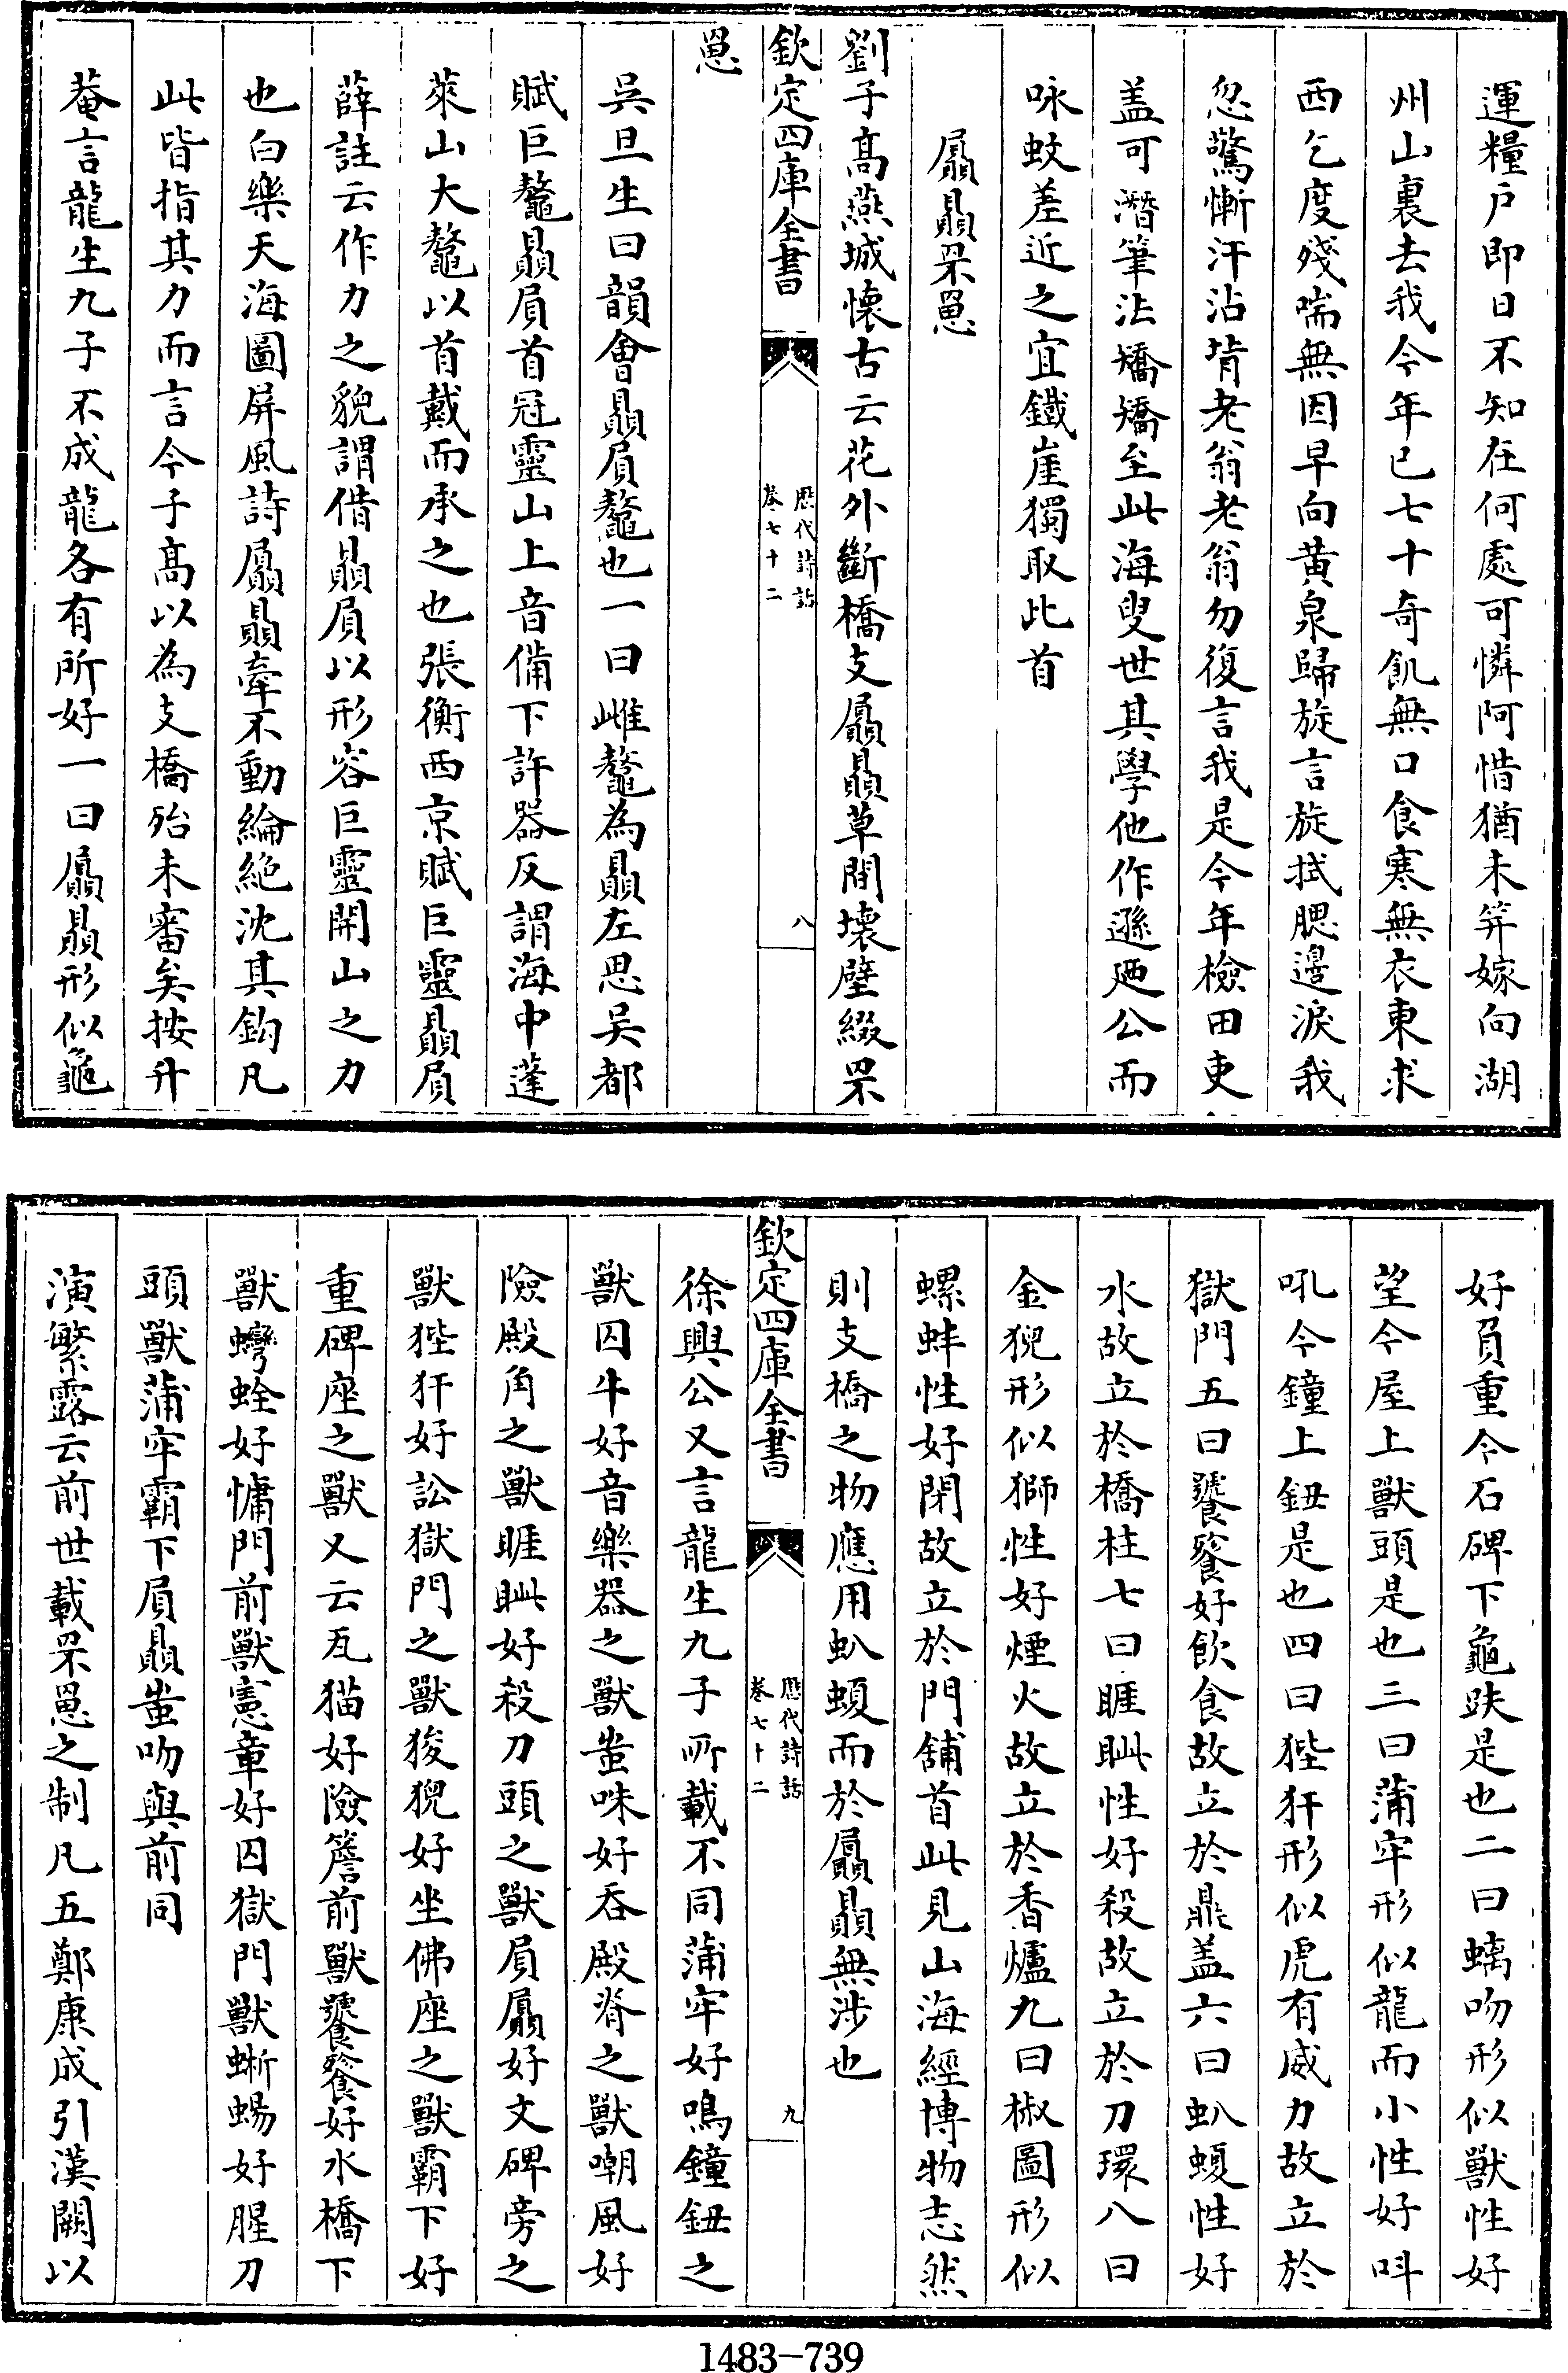 運糧户即日不知在何處可憐阿惜猶未笄嫁向湖
州山裏去我今年已七十奇飢無口食寒無衣東求
西乞度殘喘無因早向黄泉歸旋言旋拭腮邊淚我
忽驚慚汗沾背老翁老翁勿復言我是今年檢田吏
盖可潛筆法矯矯至此海叟世其學他作遜廼公而
咏蚊差近之宜鐵崖獨取此首
贔贔罘罳
劉子髙燕城懷古云花外斷橋支贔贔草間壞壁綴罘
欽定四庫全書
歷代詩話
卷七十二
八
罳
吳旦生曰韻會贔屓鼇也一曰雌鼇為贔左思吴都
賦巨鼇贔屓首冠靈山上音備下許器反謂海中蓬
萊山大鼇以首戴而承之也張衡西京賦巨靈贔屓
薛註云作力之貌謂借贔屓以形容巨靈開山之力
也白樂天海圖屏風詩贔贔牽不動綸絶沈其鈎凡
此皆指其力而言今子髙以為支橋殆未審矣按升
菴言龍生九子不成龍各有所好一曰贔贔形似龜
好負重今石碑下龜趺是也二曰螭吻形似獸性好
望今屋上獸頭是也三曰蒲牢形似龍而小性好呌
吼今鐘上鈕是也四曰狴犴形似虎有威力故立於
獄門五曰饕餮好飲食故立於鼎盖六曰𧈢蝮性好
水故立於橋柱七曰睚眦性好殺故立於刀環八曰
金猊形似獅性好煙火故立於香爐九曰椒圖形似
螺蚌性好閉故立於門舖首此見山海經博物志然
則支橋之物應用𧈢蝮而於贔贔無涉也
欽定四庫全書
歷代詩話
卷七十二
九
徐興公又言龍生九子所載不同蒲牢好鳴鐘鈕之
獸囚牛好音樂器之獸蚩咮好吞殿脊之獸嘲風好
險殿角之獸睚眦好殺刀頭之獸屓贔好文碑旁之
獸狴犴好訟獄門之獸狻猊好坐佛座之獸霸下好
重碑座之獸又云瓦猫好險簷前獸饕餮好水橋下
獸蠻蛫好慵門前獸憲章好囚獄門獸蜥蜴好腥刀
頭獸蒲牢霸下屓贔蚩吻與前同
演繁露云前世載罘罳之制凡五鄭康成引漢闕以
1483-739